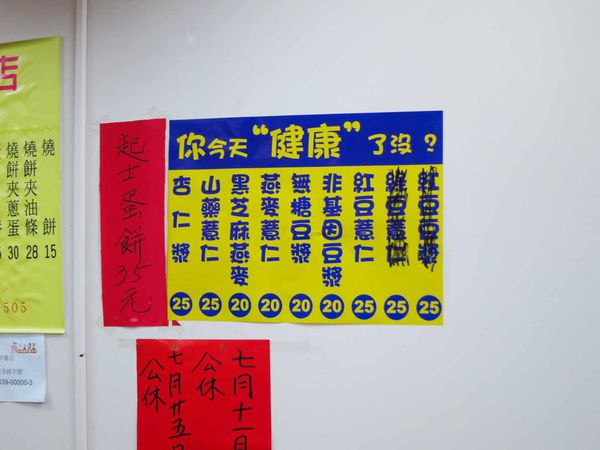 店
燒餅夾蔥蛋 30
燒餅夾油條 28
燒餅 15
505
39-00000-3
起士蛋餅35元
你今天“健康”了沒？
杏仁漿 25
山藥薏仁 25
黑芝麻燕麥 20
燕麥薏仁 20
無糖豆漿 20
非基因豆漿 20
紅豆薏仁 25
25
25
七月十一日
公休
七月廿五日
公休